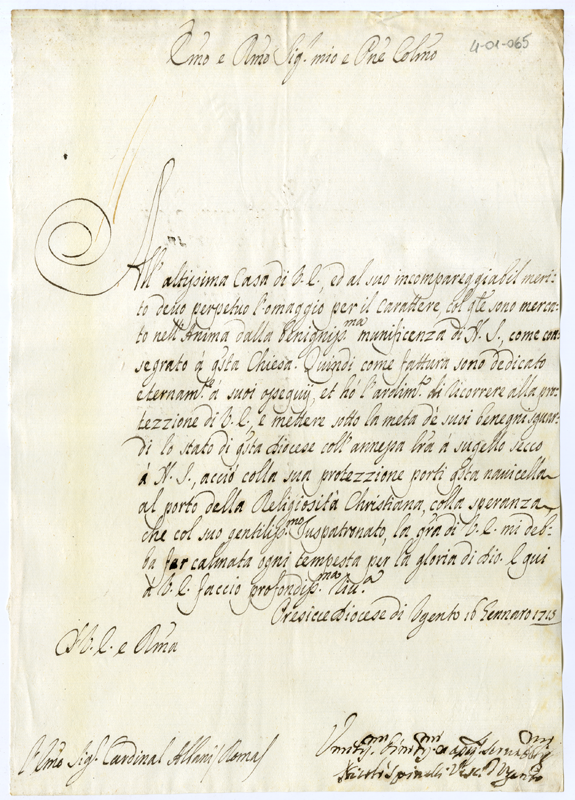 4-01-065
Emo e Rmo Sig.r mio e Pne Colmo
All' altissima Casa di V. E., ed al suo incompareggiabil meri-
to devo perpetuo l'omaggio per il Carattere, col q.le sono merca-
to nell'Anima dalla Beniginiss.ma munificenza di N. S., come con
segrato à q.sta Chiesa. Quindi come fattura sono dedicato
eternam.te à suoi ossequij, et hò l'ardim.to di ricorrere alla pro-
tezzione di V. E., e mettere sotto la meta de suoi benegni sguar-
di lo stato di q.sta diocese coll' annessa lr̃a à sugello secco
à N. S., acciò colla sua protezzione porti q.sta navicella
al porto della Religiosità Christiana, colla speranza
che col suo gentiliss.mo Juspatronato, la gr̃a di V. E. mi deb-
ba far calmata ogni tempesta per la gloria di dio. E qui
à V. E. faccio profondiss.ma riv.a
Presicce diocese di Ugento 16 Gennaro 1713
D V. E. e Rma
Emo Sig.r Cardinal Albani Roma
Nicolò Spinelli Vesc. d'Ugento